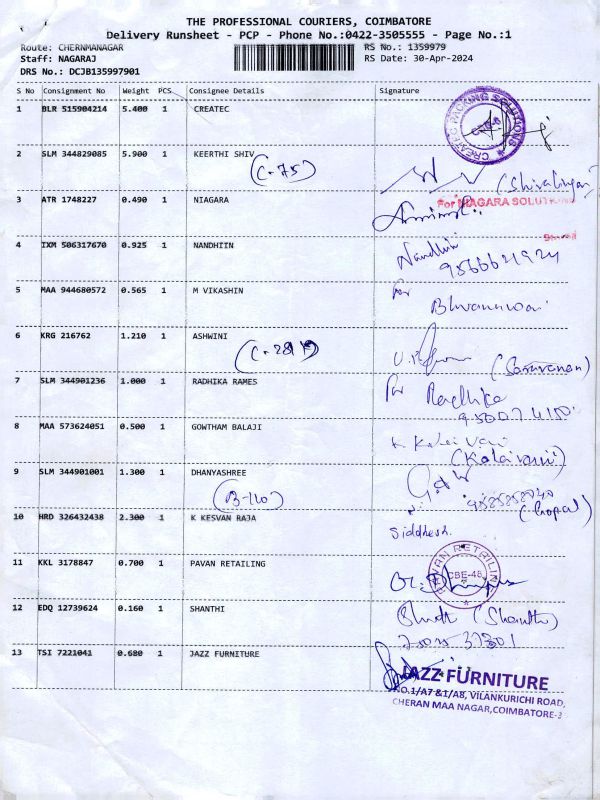 THE PROFESSIONAL COURIERS, COIMBATORE
Delivery Runsheet - PCP - Phone No.:0422-3505555 - Page No.:1
Route: CHERNMANAGAR RS No.: 1359979
Staff: NAGARAJ RS Date: 30-Apr-2024
DRS No.: DCJB135997901
S No Consignment No Weight PCS Consignee Details Signature
1 BLR 515904214 5.400 1 CREATEC
CREATEC PACKING SOLUTIONS
2 SLM 344829085 5.900 1 KEERTHI SHIV
(C-75)
3 ATR 1748227 0.490 1 NIAGARA
For NIAGARA SOLUTIONS
4 IXM 506317670 0.925 1 NANDHIIN
Nandhini
5 MAA 944680572 0.565 1 M VIKASHIN
for
6 KRG 216762 1.210 1 ASHWINI
(Saravanan)
7 SLM 344901236 1.000 1 RADHIKA RAMES
for Radhika
8 MAA 573624051 0.500 1 GOWTHAM BALAJI
(Kalaivani)
9 SLM 344901001 1.300 1 DHANYASHREE
(B-110)
(Gopal)
10 HRD 326432438 2.300 1 K KESVAN RAJA
Siddhesh
11 KKL 3178847 0.700 1 PAVAN RETAILING
PAVAN RETAILING
CBE-48
12 EDQ 12739624 0.160 1 SHANTHI
(Shanthi)
13 TSI 7221041 0.680 1 JAZZ FURNITURE
JAZZ FURNITURE
NO.1/A7 &1/A8, VILANKURICHI ROAD,
CHERAN MAA NAGAR,COIMBATORE-3